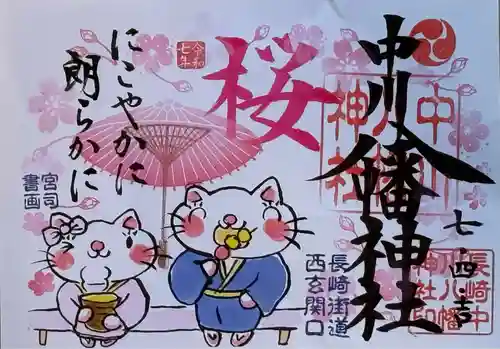 中川八幡神社
七・四・吉
桜
令和
七年
にこやかに
朗らかに
宮司
書画
長崎街道
西玄関口
中川
八幡
神社
長崎中
川八幡
神社印